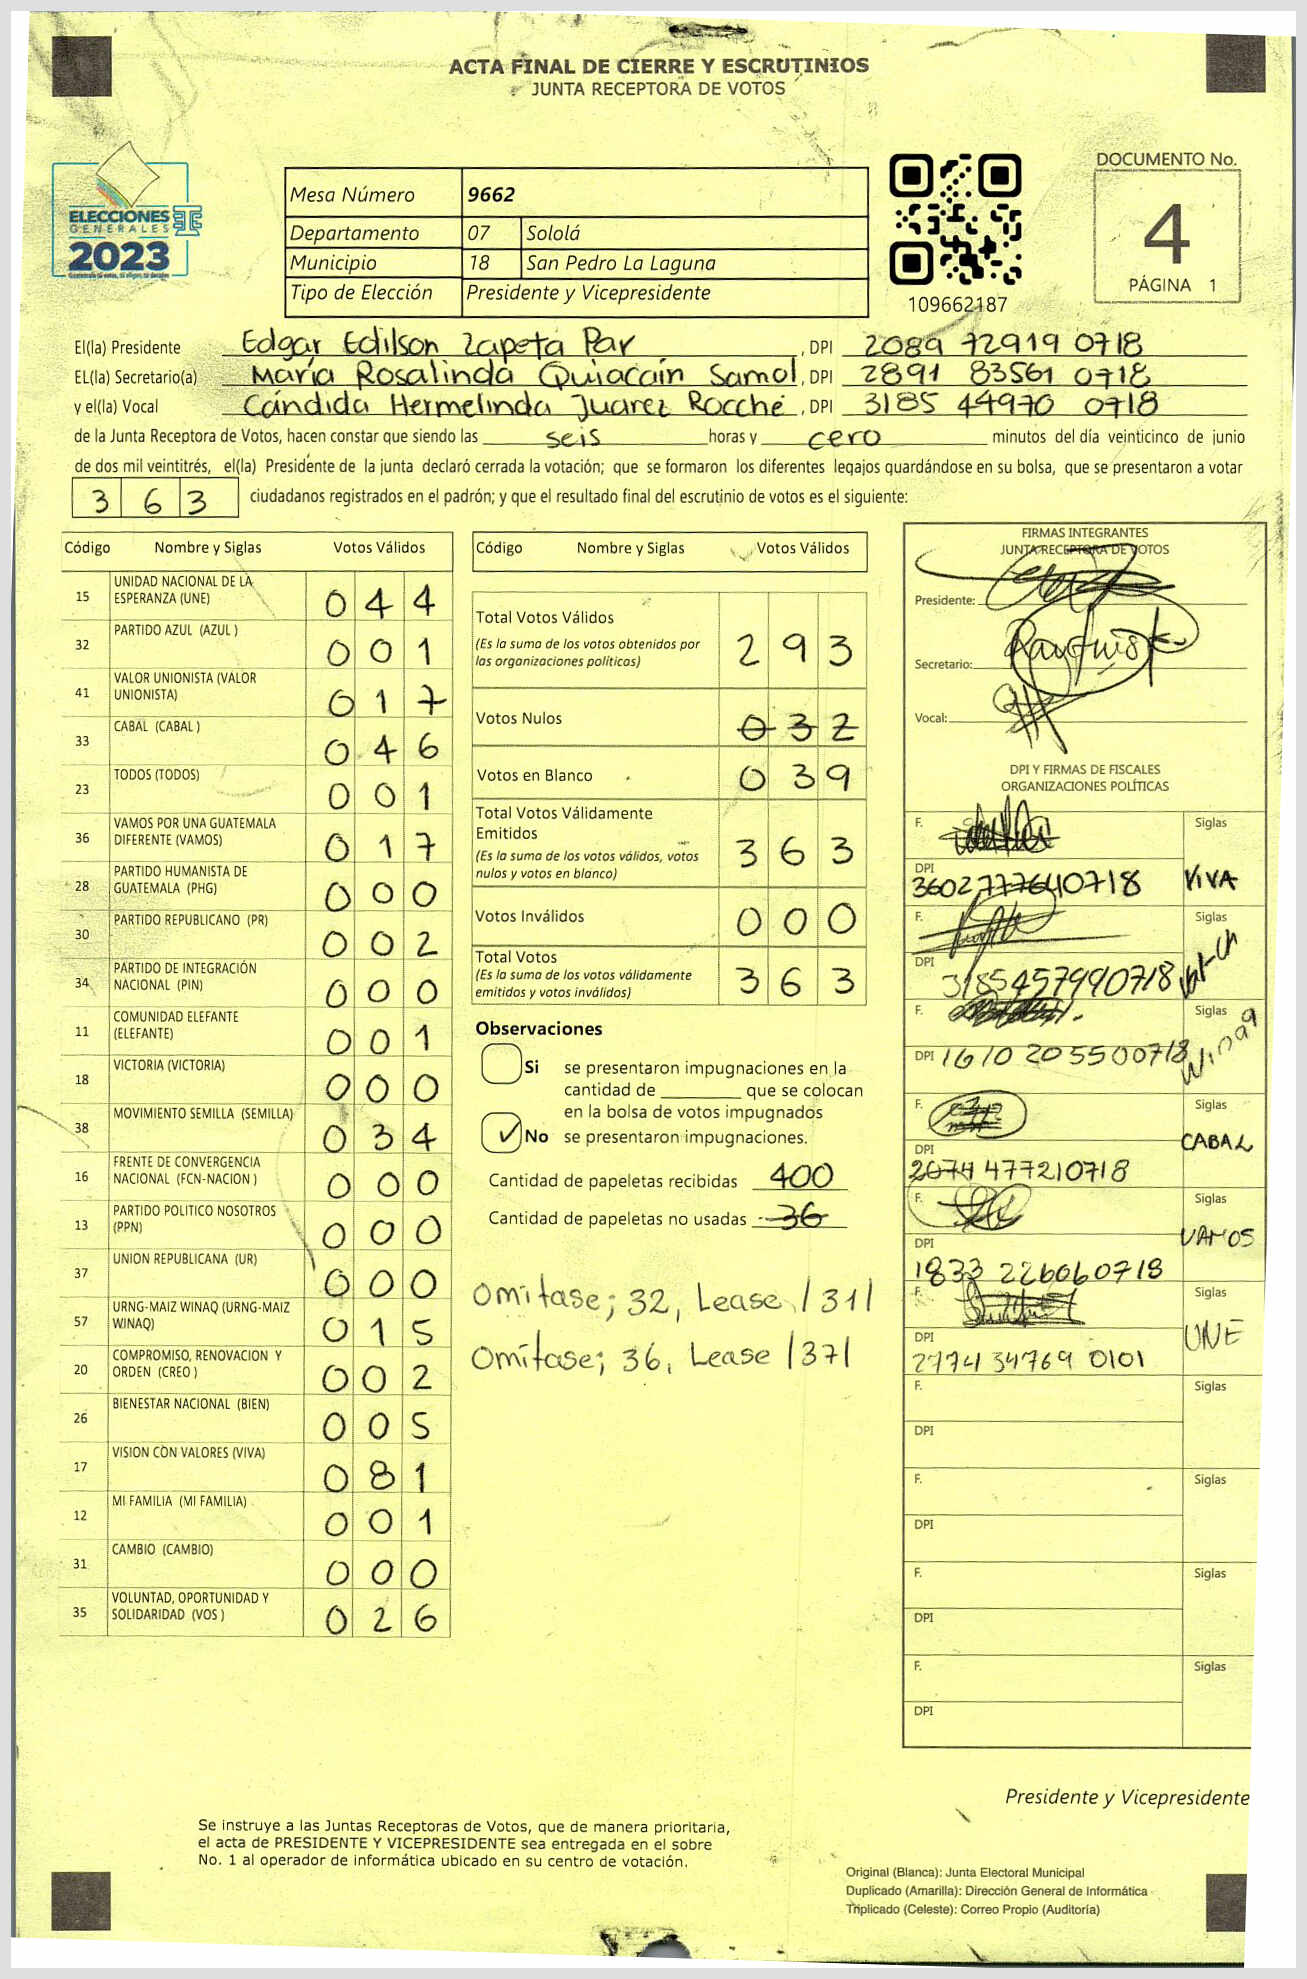 ACTA FINAL DE CIERRE Y ESCRUTINIOS
JUNTA RECEPTORA DE VOTOS
ELECCIONES
GENERALES
2023
Mesa Número 9662
Departamento 07 Sololá
Municipio 18 San Pedro La Laguna
Tipo de Elección Presidente y Vicepresidente
109662187
DOCUMENTO No.
4
PÁGINA 1
El(la) Presidente Edgar Edilson Zapeta Par, DPI 2089 72919 0718
EL(la) Secretario(a) María Rosalinda Quiacaín Samol, DPI 2891 83561 0718
y el(la) Vocal Cándida Hermelinda Juarez Rocché, DPI 3185 44970 0718
de la Junta Receptora de Votos, hacen constar que siendo las seis horas y cero minutos del día veinticinco de junio
de dos mil veintitrés, el(la) Presidente de la junta declaró cerrada la votación; que se formaron los diferentes legajos guardándose en su bolsa, que se presentaron a votar
363 ciudadanos registrados en el padrón; y que el resultado final del escrutinio de votos es el siguiente:
Código Nombre y Siglas Votos Válidos
15 UNIDAD NACIONAL DE LA ESPERANZA (UNE) 044
32 PARTIDO AZUL (AZUL ) 001
41 VALOR UNIONISTA (VALOR UNIONISTA) 017
33 CABAL (CABAL ) 046
23 TODOS (TODOS) 001
36 VAMOS POR UNA GUATEMALA DIFERENTE (VAMOS) 017
28 PARTIDO HUMANISTA DE GUATEMALA (PHG) 000
30 PARTIDO REPUBLICANO (PR) 002
34 PARTIDO DE INTEGRACIÓN NACIONAL (PIN) 000
11 COMUNIDAD ELEFANTE (ELEFANTE) 001
18 VICTORIA (VICTORIA) 000
38 MOVIMIENTO SEMILLA (SEMILLA) 034
16 FRENTE DE CONVERGENCIA NACIONAL (FCN-NACION ) 000
13 PARTIDO POLITICO NOSOTROS (PPN) 000
37 UNION REPUBLICANA (UR) 000
57 URNG-MAIZ WINAQ (URNG-MAIZ WINAQ) 015
20 COMPROMISO, RENOVACION Y ORDEN (CREO ) 002
26 BIENESTAR NACIONAL (BIEN) 005
17 VISION CON VALORES (VIVA) 081
12 MI FAMILIA (MI FAMILIA) 001
31 CAMBIO (CAMBIO) 000
35 VOLUNTAD, OPORTUNIDAD Y SOLIDARIDAD (VOS ) 026
Código Nombre y Siglas Votos Válidos
Total Votos Válidos 293
(Es la suma de los votos obtenidos por
las organizaciones políticas)
Votos Nulos 032
Votos en Blanco 039
Total Votos Válidamente
Emitidos 363
(Es la suma de los votos válidos, votos
nulos y votos en blanco)
Votos Inválidos 000
Total Votos 363
(Es la suma de los votos válidamente
emitidos y votos inválidos)
Observaciones
Si se presentaron impugnaciones en la
cantidad de ________ que se colocan
en la bolsa de votos impugnados
✓ No se presentaron impugnaciones.
Cantidad de papeletas recibidas 400
Cantidad de papeletas no usadas 36
Omitase; 32, Lease /31/
Omitase; 36, Lease /37/
FIRMAS INTEGRANTES
JUNTA RECEPTORA DE VOTOS
Presidente:
Secretario:
Vocal:
DPI Y FIRMAS DE FISCALES
ORGANIZACIONES POLÍTICAS
F. Siglas
DPI 3602777640718 VIVA
F. Siglas
DPI 3185457990718
F. Siglas
DPI 1610 20550 0718 Winaq
F. Siglas
DPI 2074 47721 0718 CABAL
F. Siglas
DPI 1833 22606 0718 VAMOS
F. Siglas
DPI 2774 34769 0101 UNE
F. Siglas
DPI
F. Siglas
DPI
F. Siglas
DPI
F. Siglas
DPI
Presidente y Vicepresidente
Se instruye a las Juntas Receptoras de Votos, que de manera prioritaria,
el acta de PRESIDENTE Y VICEPRESIDENTE sea entregada en el sobre
No. 1 al operador de informática ubicado en su centro de votación.
Original (Blanca): Junta Electoral Municipal
Duplicado (Amarilla): Dirección General de Informática
Triplicado (Celeste): Correo Propio (Auditoría)